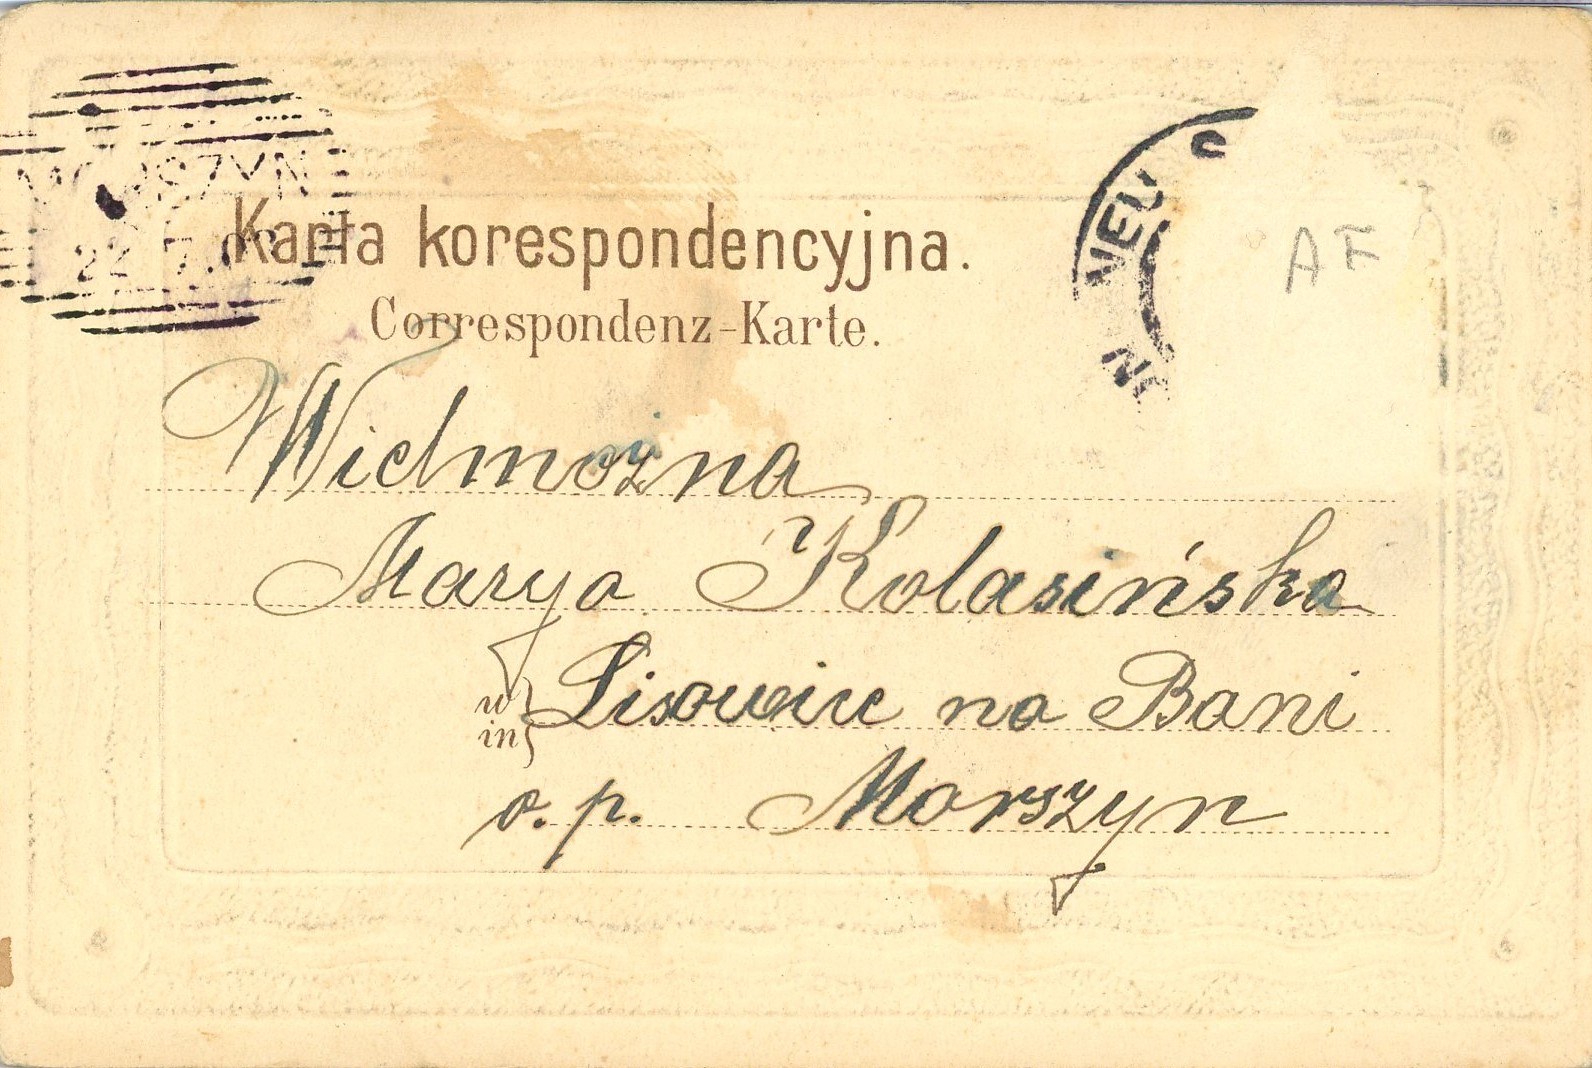 MORSZYN
22.7.
Karta korespondencyjna.
Correspondenz-Karte.
AF
Wielmożna
Marya Kolasińska
w
in
Lisowice na Bani
o. p. Morszyn